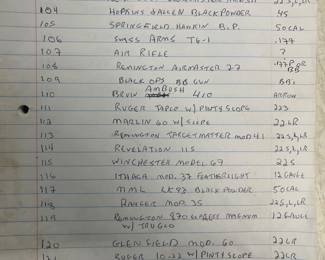 104 HOPKINS & ALLEN BLACK POWDER 45
105 SPRINGFIELD HAWKIN B.P. 50CAL
106 SWISS ARMS TG-1 .177
107 AIR RIFLE ?
108 REMINGTON AIRMASTER 77 .177 P OR BB
109 BLACK OPS BB GUN BB's
110 BRUIN AMBUSH 410 ARROW
111 RUGER TAPCO W/ PINTY SCOPE 223
112 MARLIN 60 W/ SCOPE 22LR
113 REMINGTON TARGETMASTER MOD 41 22 S,L,LR
114 REVELATION 115 22 S,L,LR
115 WINCHESTER MODEL 67 22S
116 ITHACA MOD. 37 FEATHERLIGHT 12 GAUGE
117 MML LK93 BLACK POWDER 50CAL
118 RANGER MOR 35 22S,L,LR
119 REMINGTON 870 EXPRESS MAGNUM 12 GAUGE
W/ TRUGLO
120 GLENFIELD MOD. 60 22LR
121 RUGER 10-22 W/ PINTY SCOPE 22LR